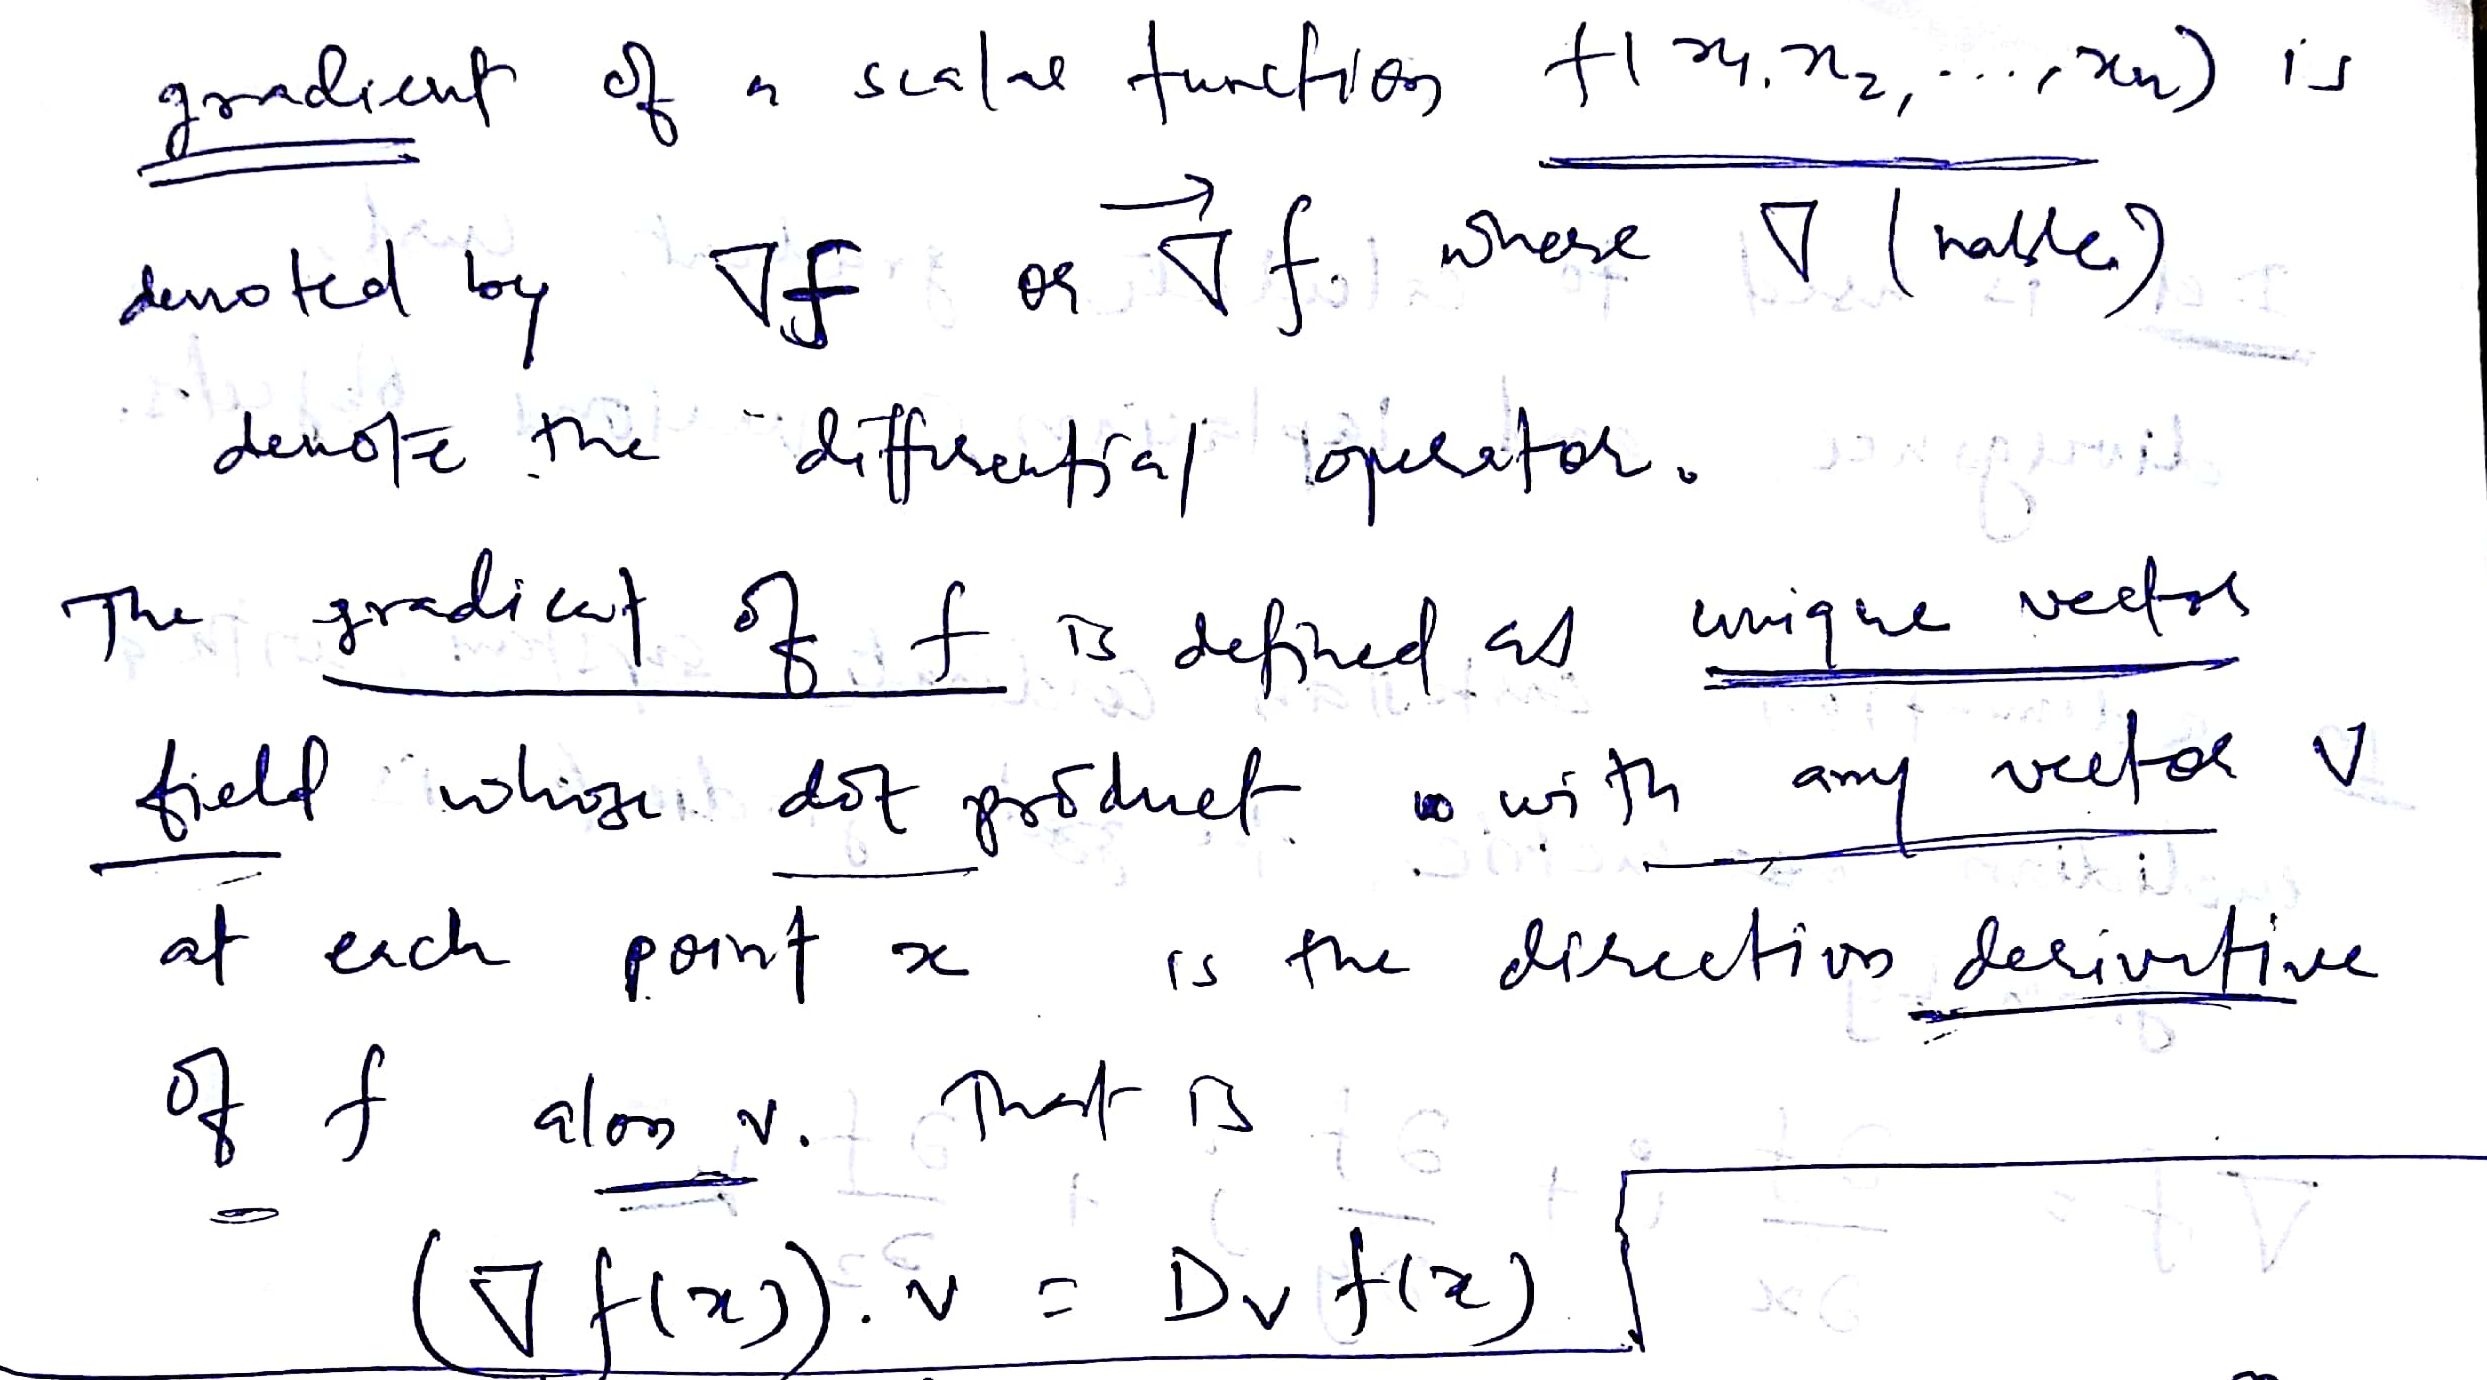 gradient of a scalar function f(x1, x2, ..., xn) is
denoted by ∇f or ∇⃗f. where ∇ (nabla)
denote the differential operator.
The gradient of f is defined as unique vector
field whose dot product with any vector v
at each point x is the direction derivative
of f along v. That is
(∇f(x)).v = Dv f(x)